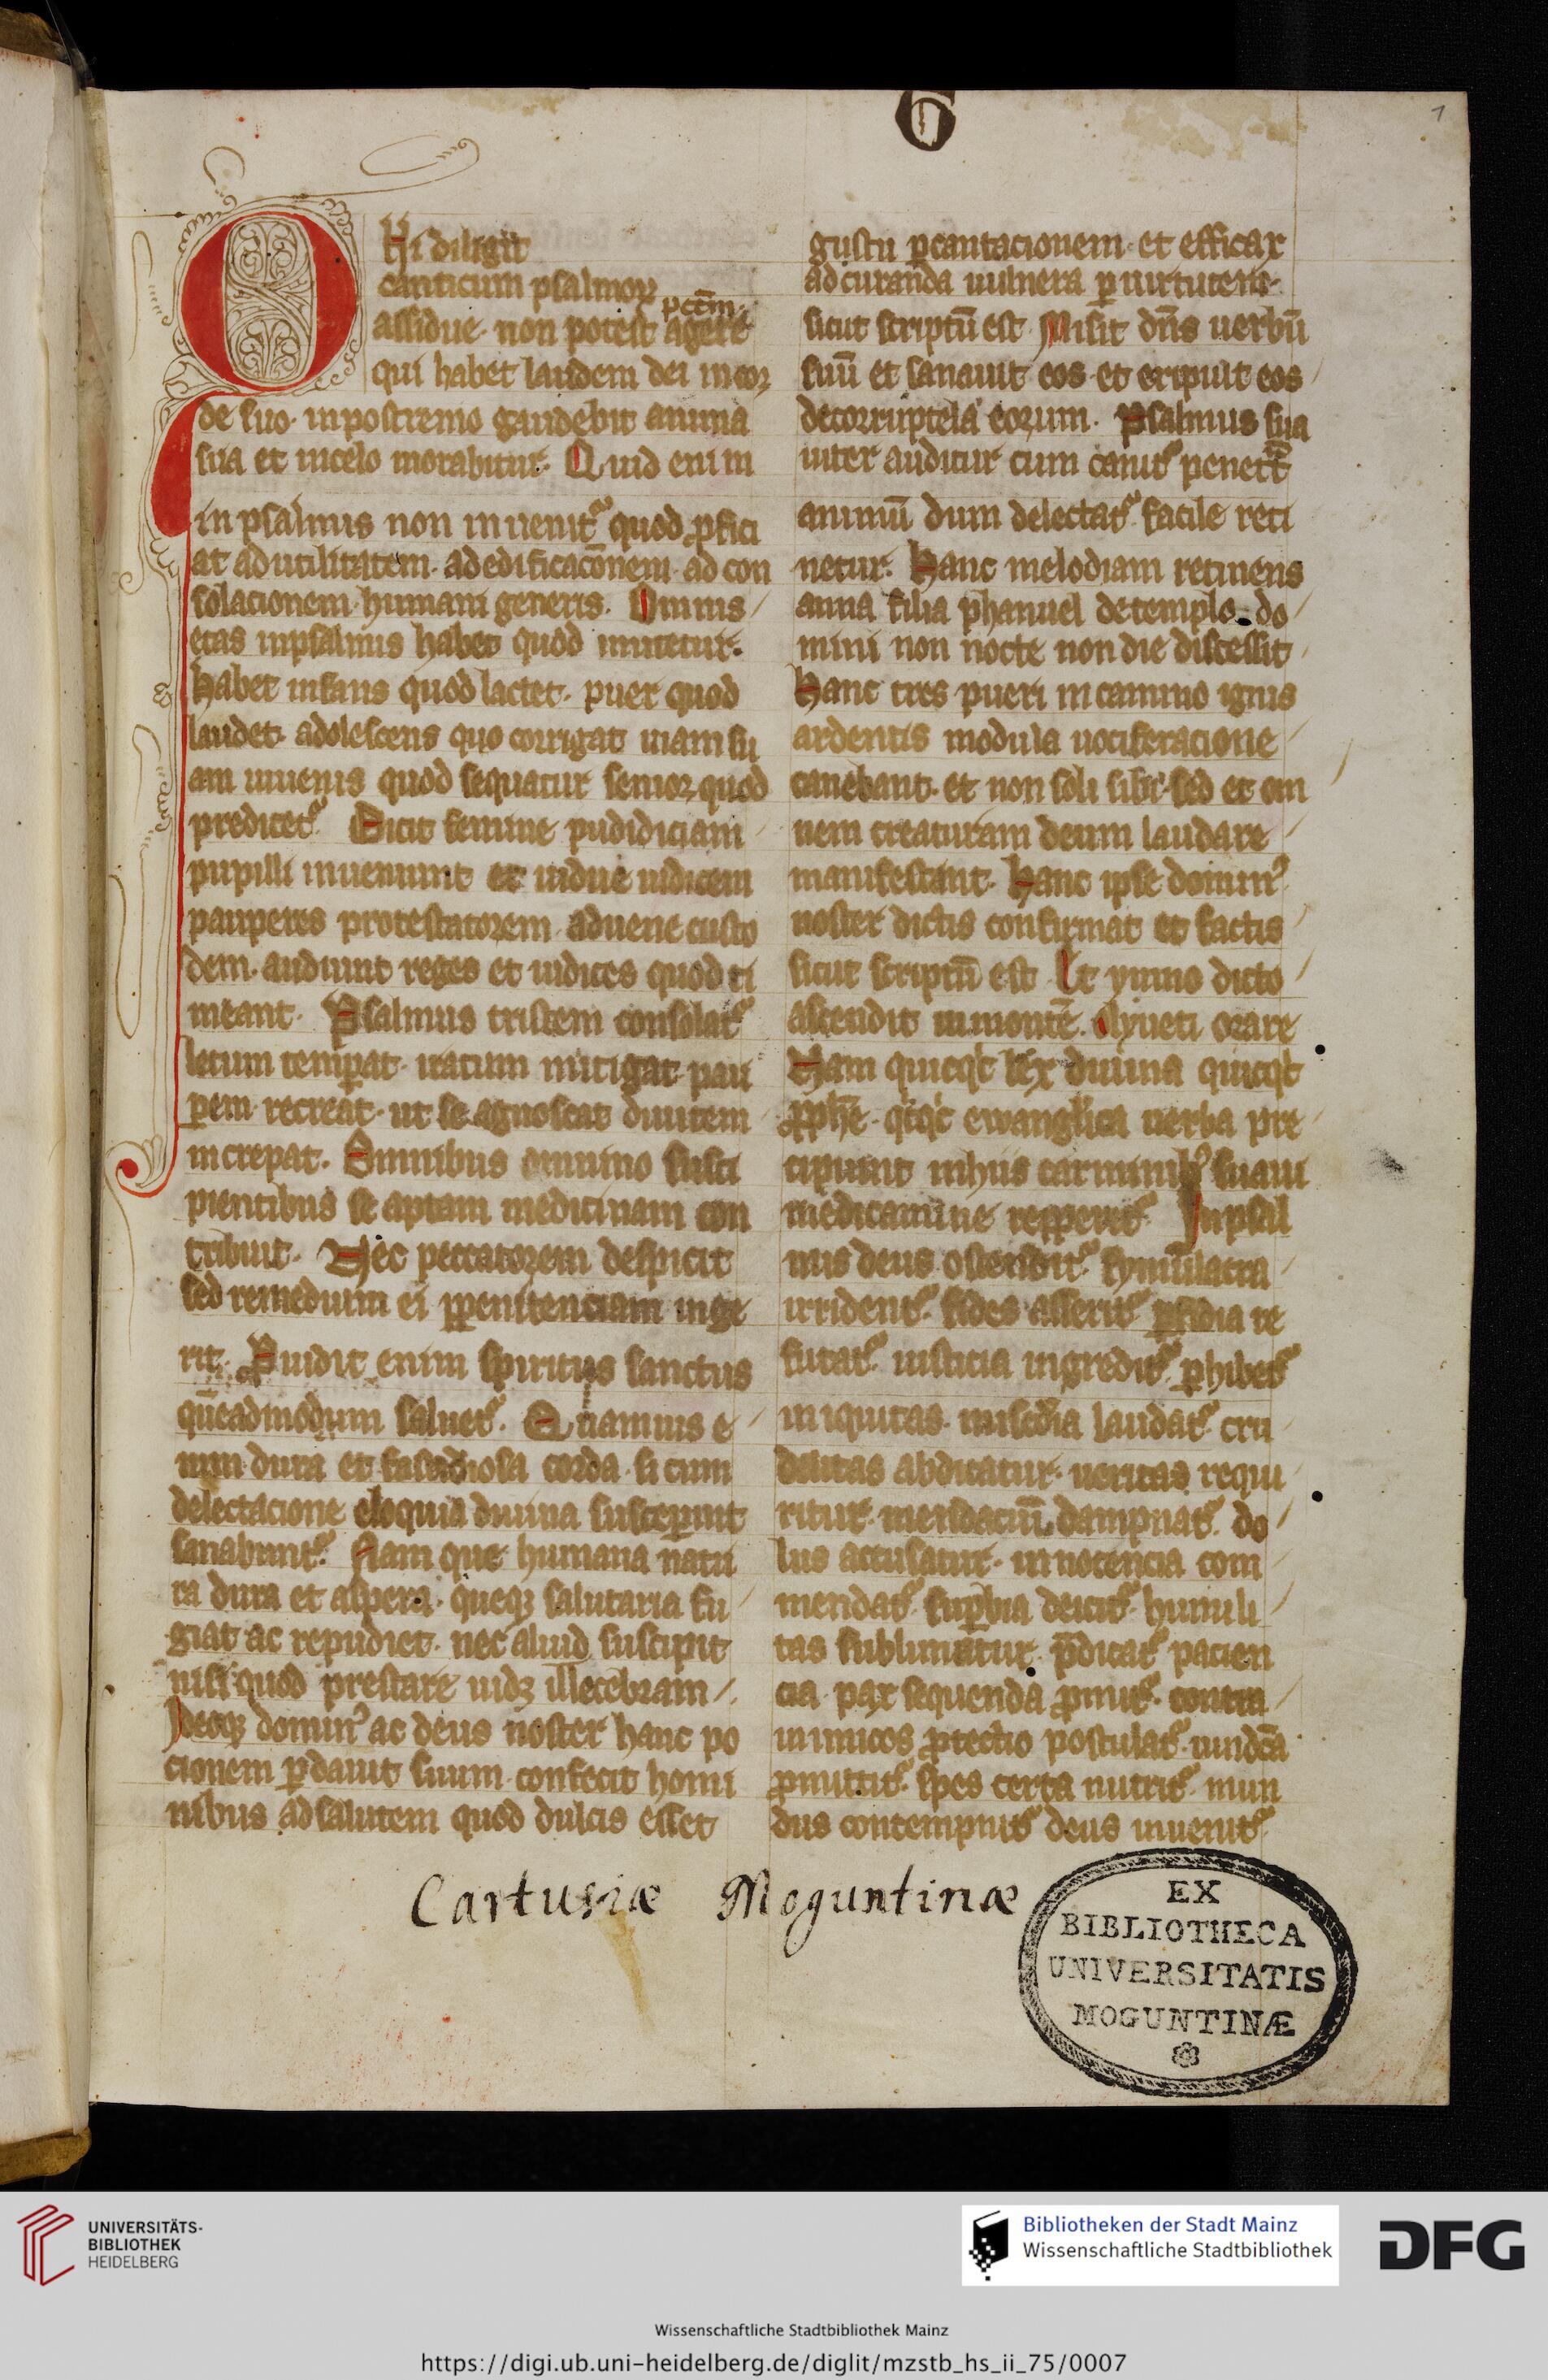 G
1
Qui diligit
canticum psalmoꝝ
pctm̄
assidue · non potest agere
qui habet laudem dei in cor
de suo · in postremo gaudebit anima
sua et in celo morabitur. Quid enim
in psalmis non inuenit᷑ quod ꝓfici
at ad utilitatem · ad edificacōnem · ad con
solacionem humani generis. Omnis
etas in psalmis habet quod imitetur.
habet infans quod lactet · puer quod
laudet · adolescens quo corrigat uiam su
am iuuenis quod sequatur senior quod
predicet᷑. Dicit femine pudidiciam
pupilli inueniunt et uidue iudicem
pauperes protestatorem aduene custo
dem · audiunt reges et iudices quod ti
meant. Psalmus tristem consolat᷑
letum temꝑat · iratum mitigat · pau
ꝑem · recreat · ut se agnoscat diuitem
increpat. Omnibus omnino susci
pientibus se aptam medicinam con
tribuit. Nec peccatorem despicit
sed remedium ei ꝑ penitenciam inge
rit. Puidit enim spiritus sanctus
quēadmodum saluet᷑. Quamuis e
nim dura et fastidiosa corda · si cum
delectacione eloquia diuina susceꝑint
sanabunt᷑. Nam que humana natu
ra dura et aspera · queqꝫ salutaria fu
giat ac repudiet · nec aliud suscipit
nisi quod prestare uidꝫ illecebram
Ideoqꝫ domin᷒ ac deus noster hanc po
cionem ꝑ dauit suum confecit homi
nibus ad salutem quod dulcis esset
gustu ꝑ cantacionem · et efficax
ad curanda uulnera ꝑ uirtutem ·
sicut scriptū est · Misit dn̄s uerbū
suū et sanauit eos · et eripuit eos
de corruptela eorum. Psalmus sua
uiter auditur cum canit᷑ penetrat
animū dum delectat᷑ facile reti
netur. Hanc melodiam retinens
anna filia phanuel de templo do
mini non nocte non die discessit
Hanc tres pueri in camino ignis
ardentis modula uociferacione
canebant · et non soli sibi · sed et om
nem creaturam deum laudare
manifestant. Hanc ipse domin᷒
noster dictis confirmat et factis
sicut scriptū est · Et ymno dicto
ascendit in montē. Olyueti orare
Nam quicqͥd lex diuina quicqͥd
ꝓphē · qͥcqͥd ewanglica uerba pre
cipiunt in hiis carminib᷒ suaui
medicamine reꝑperit᷑. In psal
mis deus ostendit᷑ symulacra
irrident᷑ · fides asserit᷑ ꝑfidia re
futat᷑ iusticia ingredit᷑ ꝓhibet᷑
iniquitas · miscdia laudat᷑ cru
delitas abdicatur · ueritas requi
ritur · mendaciū dampnat᷑ · do
lus accusatur · innocencia com
mendat᷑ · suꝑbia deicit᷑ · humili
tas sublimatur · p̄dicat᷑ pacien
cia · pax sequenda ꝓmit᷑ · contra
inimicos ꝓtectio postulat᷑ · uindcā
ꝓmittit᷑ · spes certa nutrit᷑ · mun
dus contempnit᷑ deus inuenit᷑
Cartusiæ Moguntinæ
EX
BIBLIOTHECA
UNIVERSITATIS
MOGUNTINÆ
UNIVERSITÄTS-
BIBLIOTHEK
HEIDELBERG
Bibliotheken der Stadt Mainz
Wissenschaftliche Stadtbibliothek
DFG
Wissenschaftliche Stadtbibliothek Mainz
https://digi.ub.uni-heidelberg.de/diglit/mzstb_hs_ii_75/0007